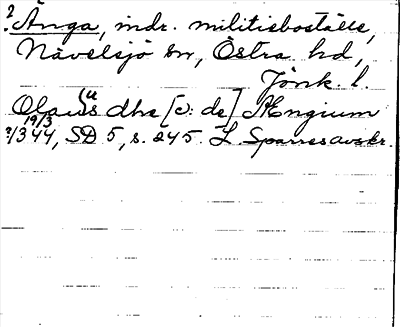 ? Änga, indr. militieboställe,
Nävelsjö sn, Östra hd,
Jönk. l.
Olaus dhe [ɔ: de] Ængium
19/3
?/344, SD 5, s. 245. L. Sparres avskr.